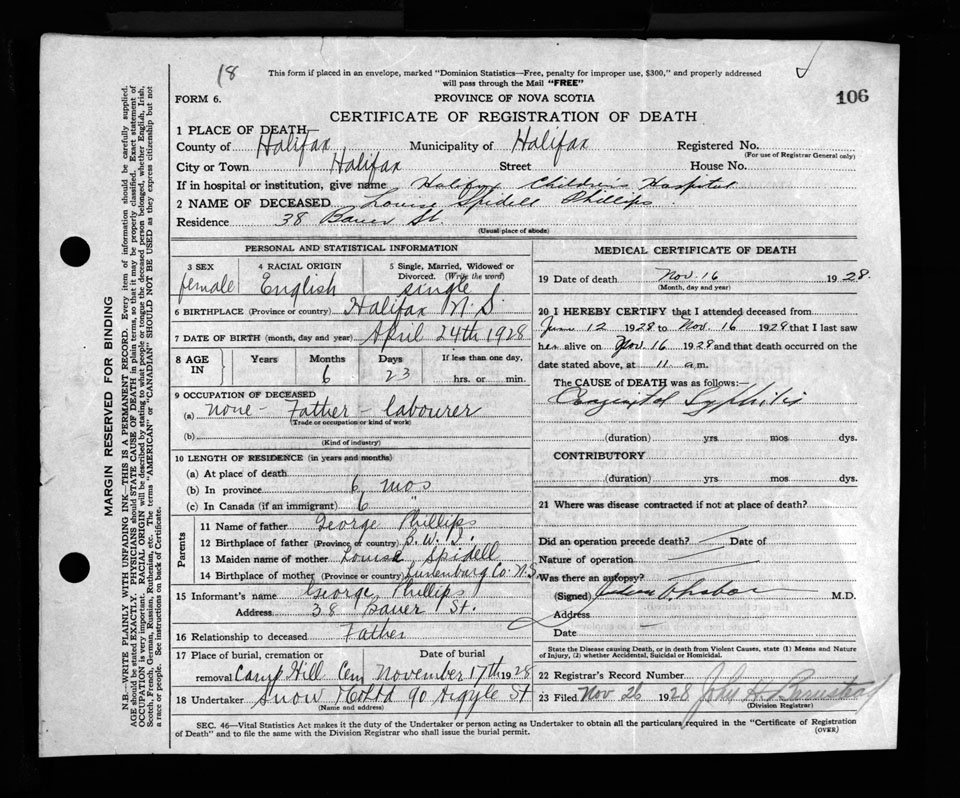 18
This form if placed in an envelope, marked "Dominion Statistics—Free, penalty for improper use, $300," and properly addressed
will pass through the Mail "FREE"
106
FORM 6.
PROVINCE OF NOVA SCOTIA
CERTIFICATE OF REGISTRATION OF DEATH
1 PLACE OF DEATH—
County of Halifax Municipality of Halifax Registered No.
(For use of Registrar General only)
City or Town Halifax Street House No.
If in hospital or institution, give name Halifax Children's Hospital
2 NAME OF DECEASED Louise Spidell Phillips
Residence 38 Bauer St.
(Usual place of abode)
PERSONAL AND STATISTICAL INFORMATION
3 SEX female
4 RACIAL ORIGIN English
5 Single, Married, Widowed or
Divorced. (Write the word)
single
6 BIRTHPLACE (Province or country) Halifax N.S.
7 DATE OF BIRTH (month, day and year) April 24th 1928
8 AGE IN Years Months Days If less than one day,
6 23 hrs. or min.
9 OCCUPATION OF DECEASED
(a) none - Father - labourer
(Trade or occupation or kind of work)
(b)
(Kind of industry)
10 LENGTH OF RESIDENCE (in years and months)
(a) At place of death
(b) In province 6 mos
(c) In Canada (if an immigrant) 6 "
Parents
11 Name of father George Phillips
12 Birthplace of father (Province or country) B.W.I.
13 Maiden name of mother Louise Spidell
14 Birthplace of mother (Province or country) Lunenburg Co. N.S.
15 Informant's name George Phillips
Address 38 Bauer St.
16 Relationship to deceased Father
17 Place of burial, cremation or Date of burial
removal Camp Hill Cem November 17th 1928
18 Undertaker Snow & Co Ltd 90 Argyle St
(Name and address)
MEDICAL CERTIFICATE OF DEATH
19 Date of death Nov. 16 1928.
(Month, day and year)
20 I HEREBY CERTIFY that I attended deceased from
June 12 1928 to Nov. 16 1928 that I last saw
her alive on Nov. 16 1928 and that death occurred on the
date stated above, at 11 a.m.
The CAUSE of DEATH was as follows:
Congenital Syphilis
(duration) yrs mos dys.
CONTRIBUTORY
(duration) yrs. mos. dys.
21 Where was disease contracted if not at place of death?
Did an operation precede death? Date of
Nature of operation
Was there an autopsy?
(Signed) M.D.
Address
Date
State the Disease causing Death, or in death from Violent Causes, state (1) Means and Nature
of Injury, (2) whether Accidental, Suicidal or Homicidal.
22 Registrar's Record Number
23 Filed Nov 26 1928 John H.
(Division Registrar)
SEC. 46—Vital Statistics Act makes it the duty of the Undertaker or person acting as Undertaker to obtain all the particulars required in the "Certificate of Registration
of Death" and to file the same with the Division Registrar who shall issue the burial permit.
(OVER)
MARGIN RESERVED FOR BINDING
N.B.—WRITE PLAINLY WITH UNFADING INK—THIS IS A PERMANENT RECORD. Every item of information should be carefully supplied.
AGE should be stated EXACTLY. PHYSICIANS should STATE CAUSE OF DEATH in plain terms, so that it may be properly classified. Exact statement of
OCCUPATION is very important. RACIAL ORIGIN will be described by stating to what people or tongue the deceased person belonged, whether English, Irish,
Scotch, French, German, Russian, Ruthenian, etc. The terms "AMERICAN" or "CANADIAN" SHOULD NOT BE USED as they express citizenship but not
a race or people. See instructions on back of Certificate.